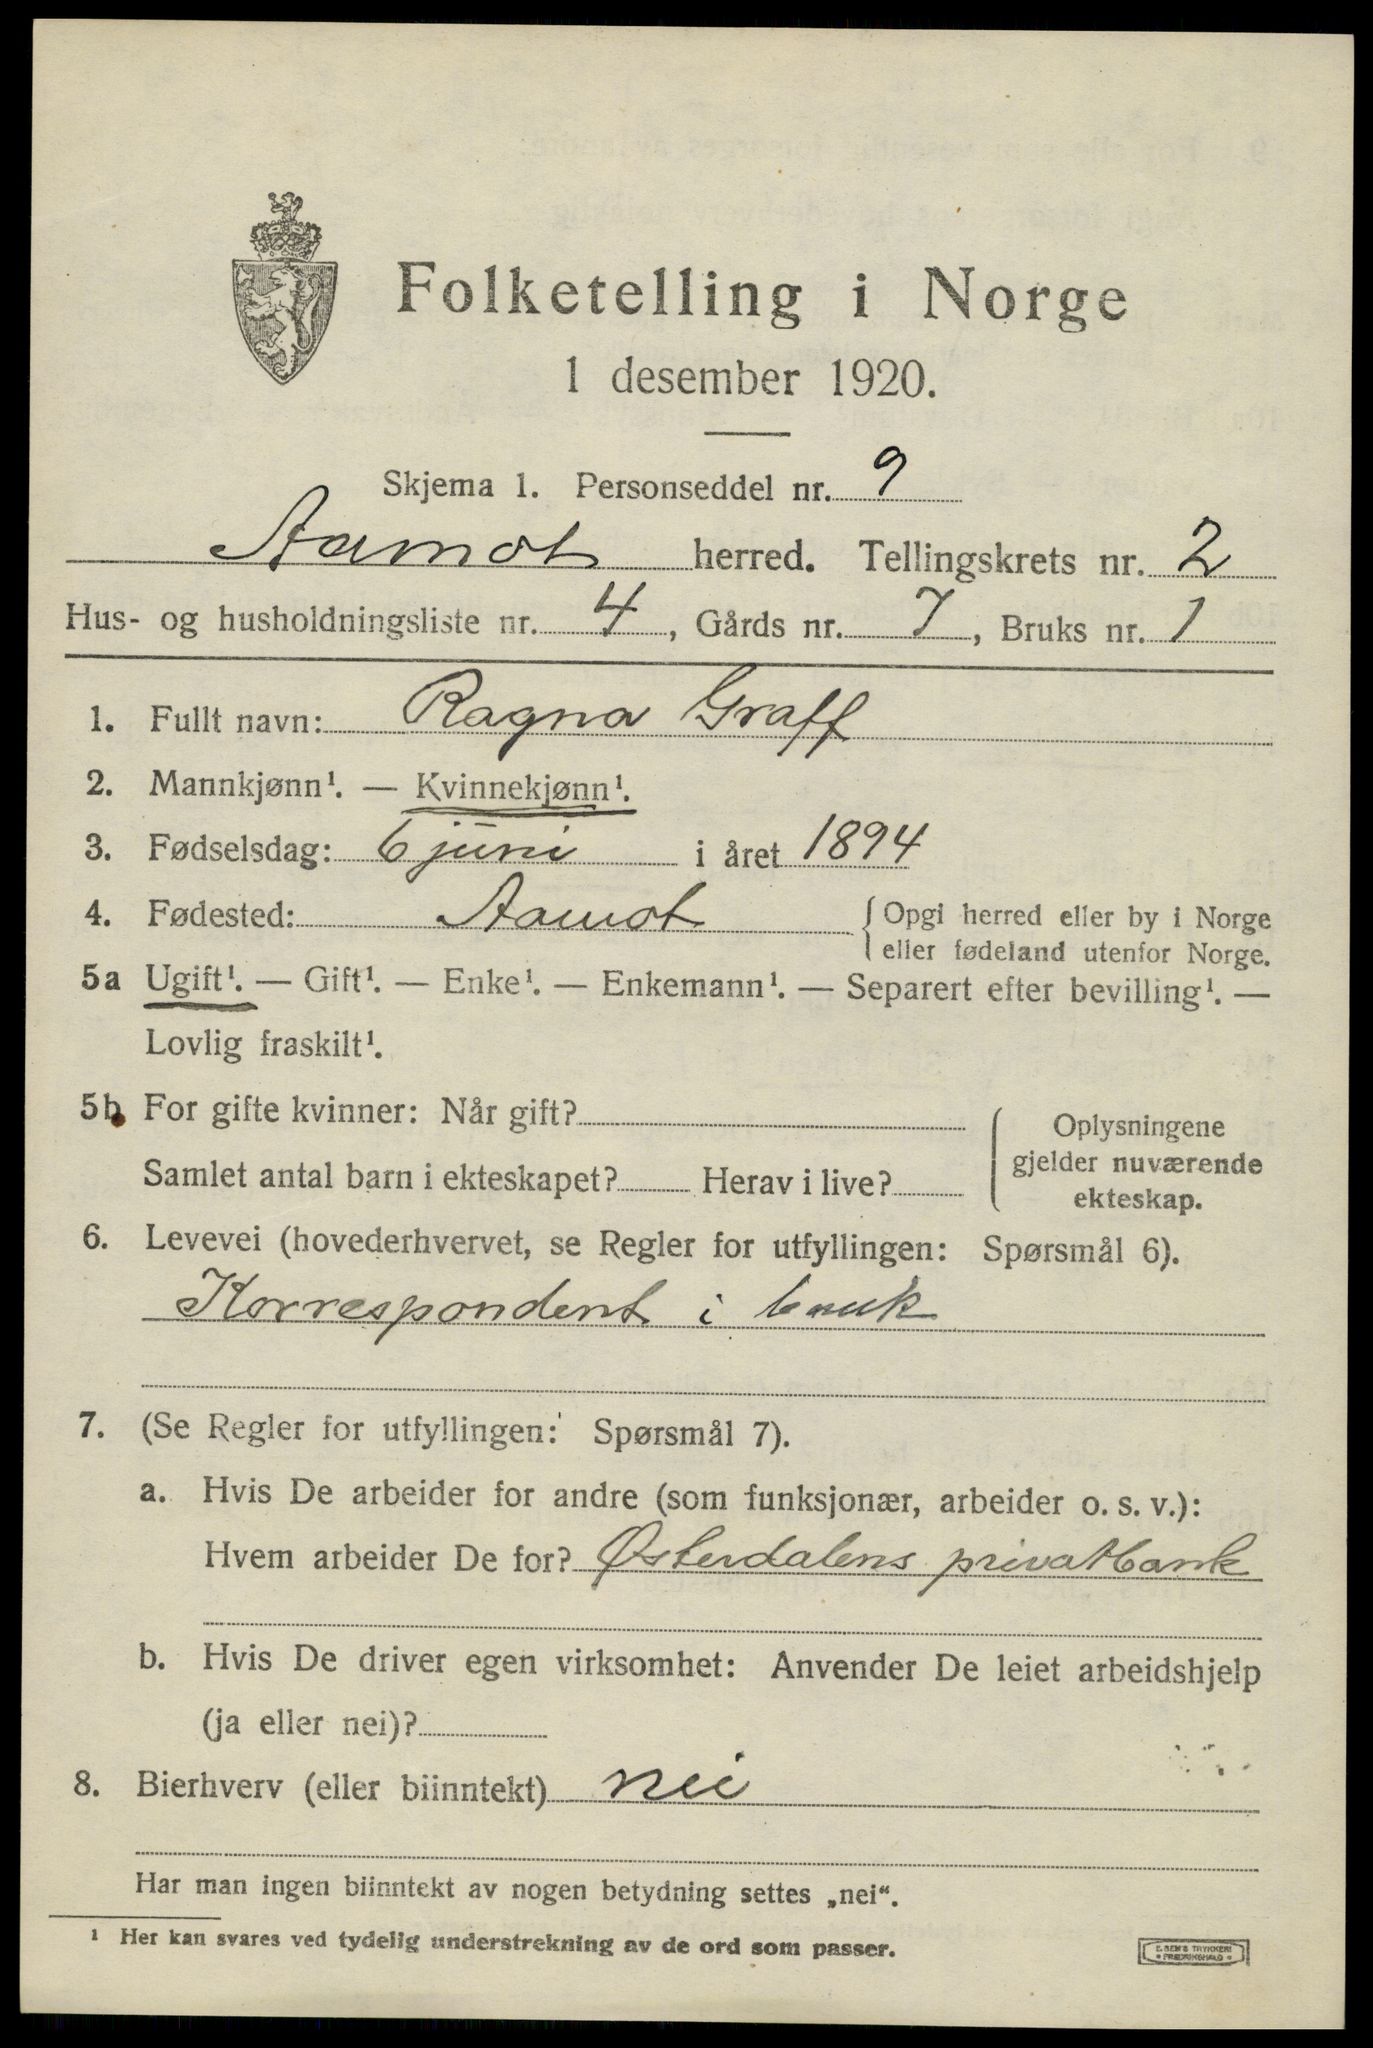 Folketelling i Norge
1 desember 1920.
Skjema 1. Personseddel nr. 9
Aamot herred. Tellingskrets nr. 2
Hus- og husholdningsliste nr. 4, Gårds nr. 7, Bruks nr. 1
1. Fullt navn: Ragna Graff
2. Mannkjønn¹. — Kvinnekjønn¹.
3. Fødselsdag: 6 juni i året 1894
4. Fødested: Aamot { Opgi herred eller by i Norge
eller fødeland utenfor Norge.
5a Ugift¹. — Gift¹. — Enke¹. — Enkemann¹. — Separert efter bevilling¹. —
Lovlig fraskilt¹.
5b For gifte kvinner: Når gift?
Samlet antal barn i ekteskapet? Herav i live?
Oplysningene
gjelder nuværende
ekteskap.
6. Levevei (hovederhvervet, se Regler for utfyllingen: Spørsmål 6).
Korrespondent i bank
7. (Se Regler for utfyllingen: Spørsmål 7).
a. Hvis De arbeider for andre (som funksjonær, arbeider o. s. v.):
Hvem arbeider De for? Østerdalens privatbank
b. Hvis De driver egen virksomhet: Anvender De leiet arbeidshjelp
(ja eller nei)?
8. Bierhverv (eller biinntekt) nei
Har man ingen biinntekt av nogen betydning settes „nei“.
¹ Her kan svares ved tydelig understrekning av de ord som passer.
E. SEM'S TRYKKERI
FREDRIKSHALD